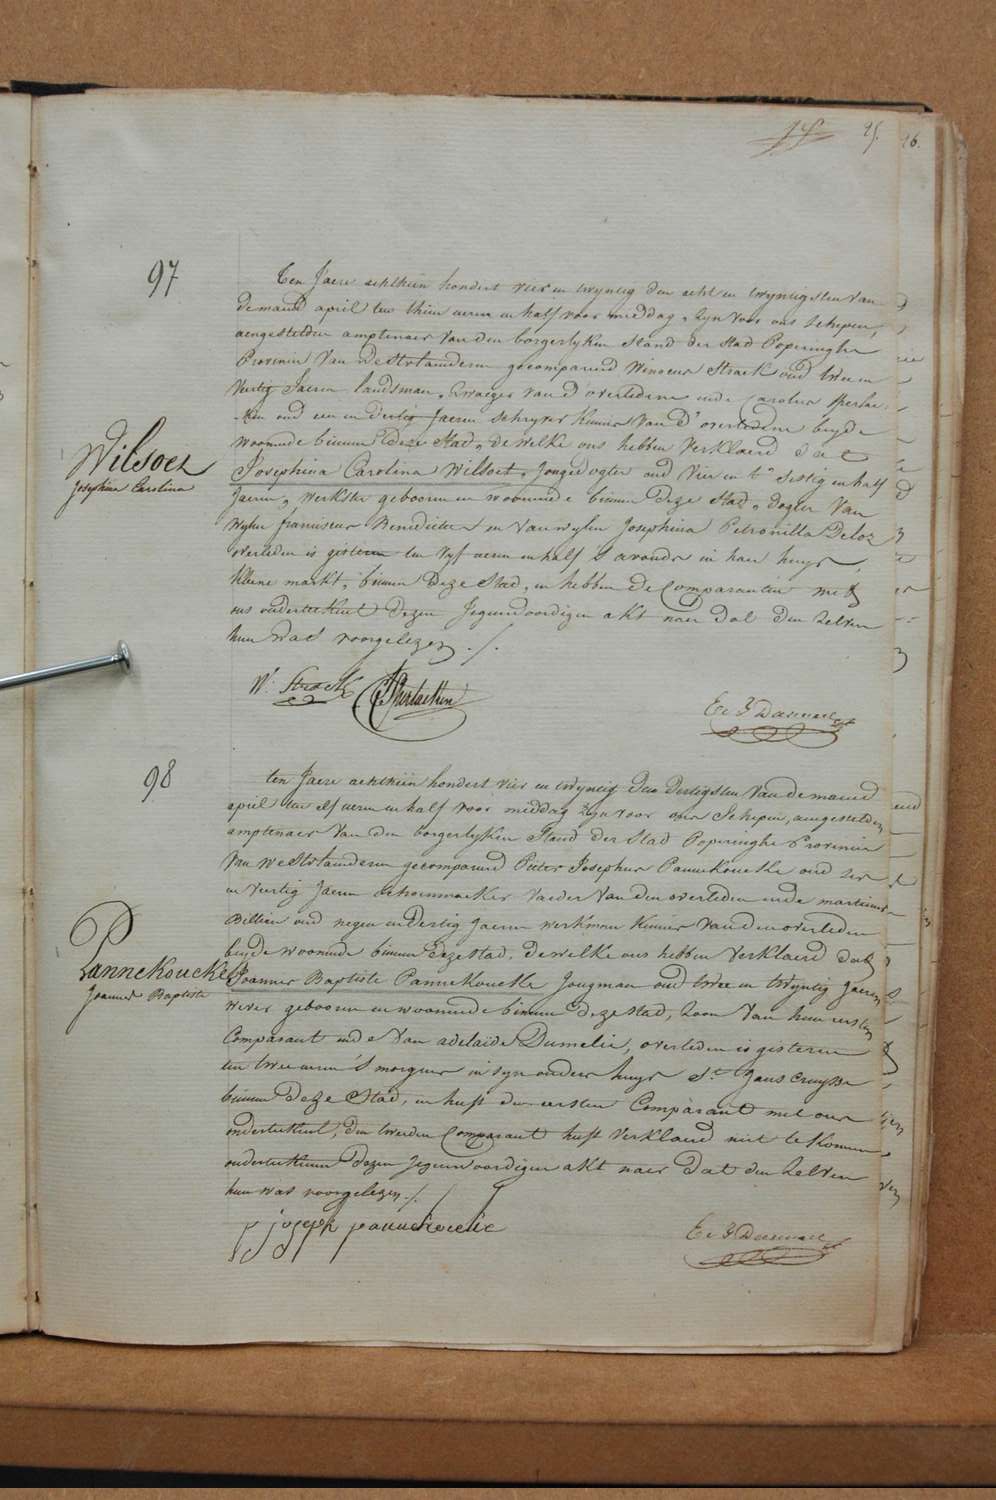 25.
26.
97
Ten Jaere achthien hondert vier en twyntig den acht en twyntigsten van
de maend april ten thien ueren en half voor middag, zyn voor ons schepen,
aengestelden amptenaer van den borgerlyken stand der stad Poperinghe
Provincie van Westvlaenderen gecompareerd Winocus Strack oud twee en
veertig Jaeren landsman, zwaeger van d'overledene ende Carolus
oud een en dertig Jaeren schryver kennis van d'overledene beyde
woonende binnen deze stad, de welke ons hebben verklaerd dat
Josephina Carolina Wilsoet, jonge dogter oud vier en t'sestig en half
Jaeren, werkster geboren en woonende binnen deze stad, dogter van
wylen franciscus Benedictus en van wylen Josephina Petronilla Deloz
overleden is gisteren ten vyf ueren en half s'avonds in haer huys,
kleine markt, binnen deze stad, en hebben de comparanten met
ons onderteekent dezen jegenwoordigen akt naer dat den zelven
hun was voorgelezen ./.
Wilsoet
Josephina Carolina
W. Strack
98
ten Jaere achthien hondert vier en twyntig den dertigsten van de maend
april ten elf ueren en half voor middag zyn voor ons schepen, aengestelden
amptenaer van den borgerlyken stand der stad Poperinghe Provincie
van Westvlaenderen gecompareerd Pieter Josephus Pannekoucke oud ses
en veertig Jaeren schoenmaeker vaeder van den overleden ende martinus
Billiau oud negen en dertig Jaeren werkman kennis van den overleden
beyde woonende binnen deze stad, de welke ons hebben verklaerd dat
Joannes Baptiste Pannekoucke Jongman oud twee en twyntig Jaeren
wever geboren en woonende binnen deze stad, zoon van hun eersten
Comparant ende van adelaide Dumelie, overleden is gisteren
ten twee ueren s'morgens in syn ouders huys St. Jans Cruysse
binnen deze stad, en heeft den eersten Comparant met ons
onderteekent, den tweeden Comparant heeft verklaerd niet te konnen
onderteekenen dezen jegenwoordigen akt naer dat den zelven
hun was voorgelezen ./.
Pannekoucke
Joannes Baptiste
p joseph pannekoucke